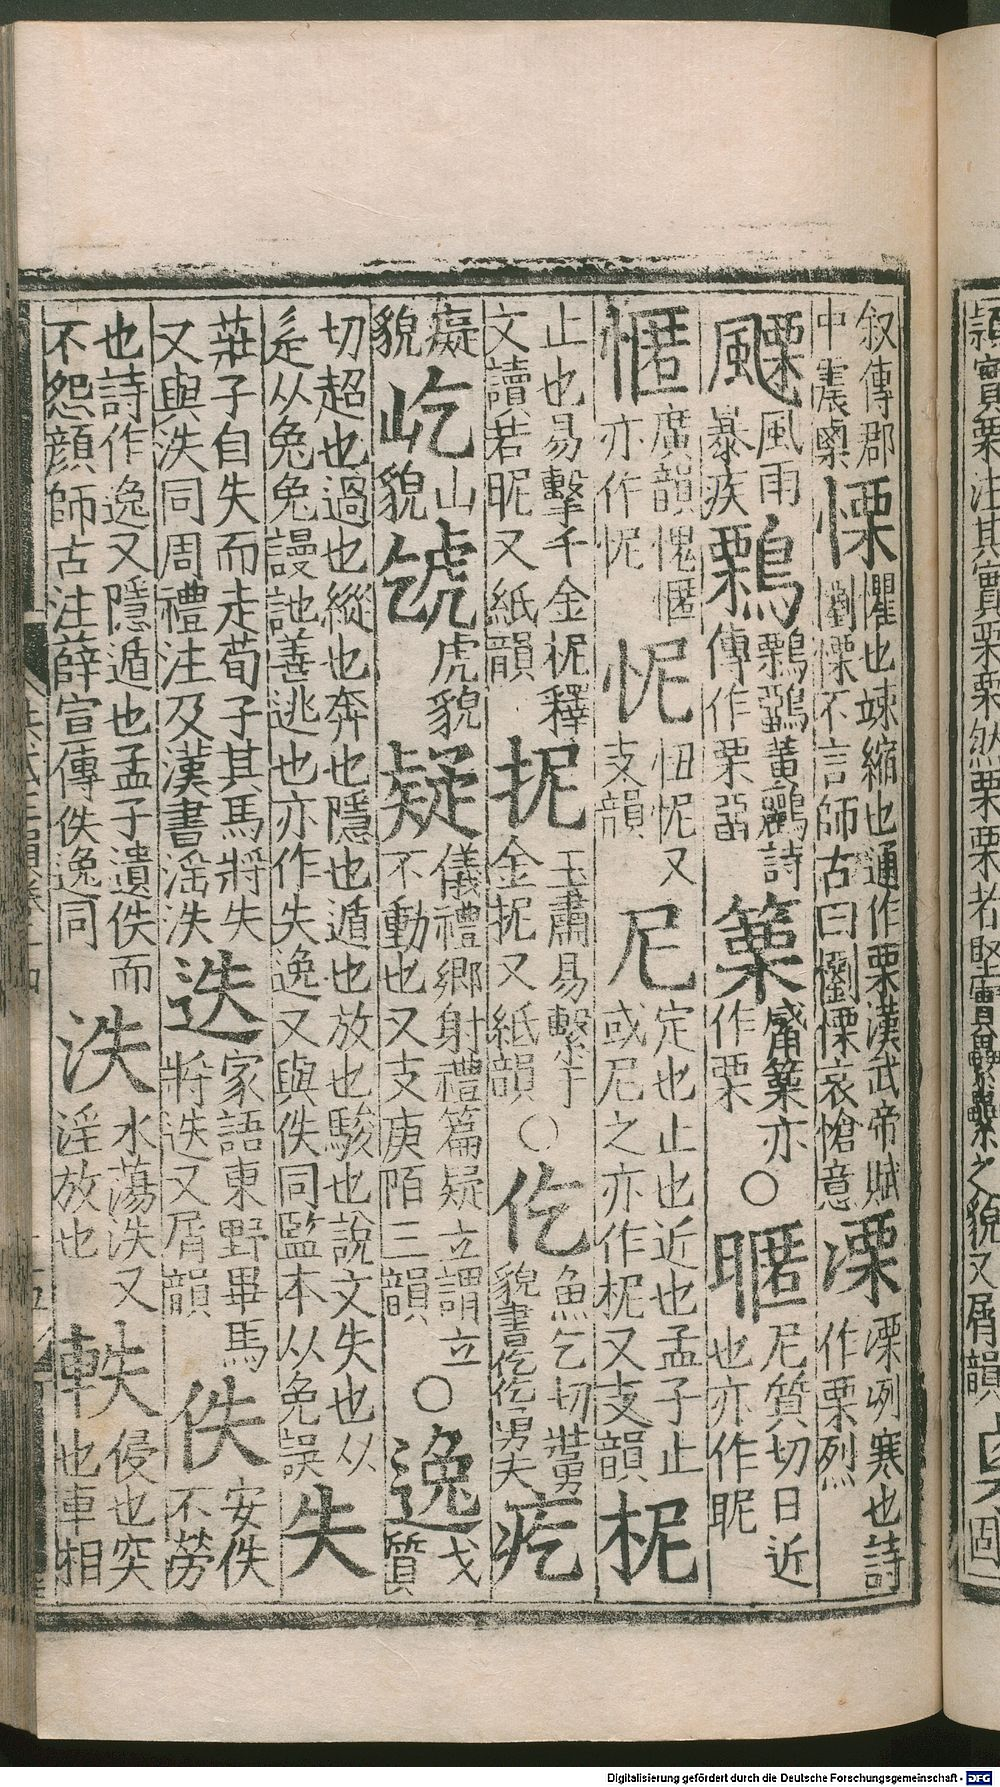 穎實栗注其實栗栗然栗栗者堅實
之貌又屑韻
叙傳郡
中震㮚
慄
懼也竦縮也通作栗漢武帝賦
懰慄不言師古曰懰慄哀愴意
溧
溧冽寒也詩
作栗烈
風雨
暴疾
鷅
鷅鶹黃鸝詩
傳作栗留
篥
觱篥亦
作栗
○
暱
尼質切日近
也亦作昵
㥾
廣韻愧㥾
亦作怩
怩
忸怩又
支韻
尼
定也止也近也孟子止
或尼之亦作柅又支韻
柅
止也易擊于金柅釋
文讀若昵又紙韻
抳
王肅易繫于
金抳又紙韻
○
仡
魚乞切壯勇
貌書仡仡勇夫
疙
癡
貌
屹
山
貌
虎貌
疑
儀禮鄉射禮篇疑立謂立
不動也又支庚陌三韻
○
逸
弋
質
切超也過也縱也奔也隱也遁也放也駿也說文失也从
辵从兔兔謾訑善逃也亦作失逸又與佚同監本从免誤
失
莊子自失而走荀子其馬將失
又與泆同周禮注及漢書滛泆
迭
家語東野畢馬
將迭又屑韻
佚
安佚
不勞
也詩作逸又隱遁也孟子遺佚而
不怨顏師古注薛宣傳佚逸同
泆
水蕩泆又
淫放也
軼
侵也突
也車相
Digitalisierung gefördert durch die Deutsche Forschungsgemeinschaft - DFG